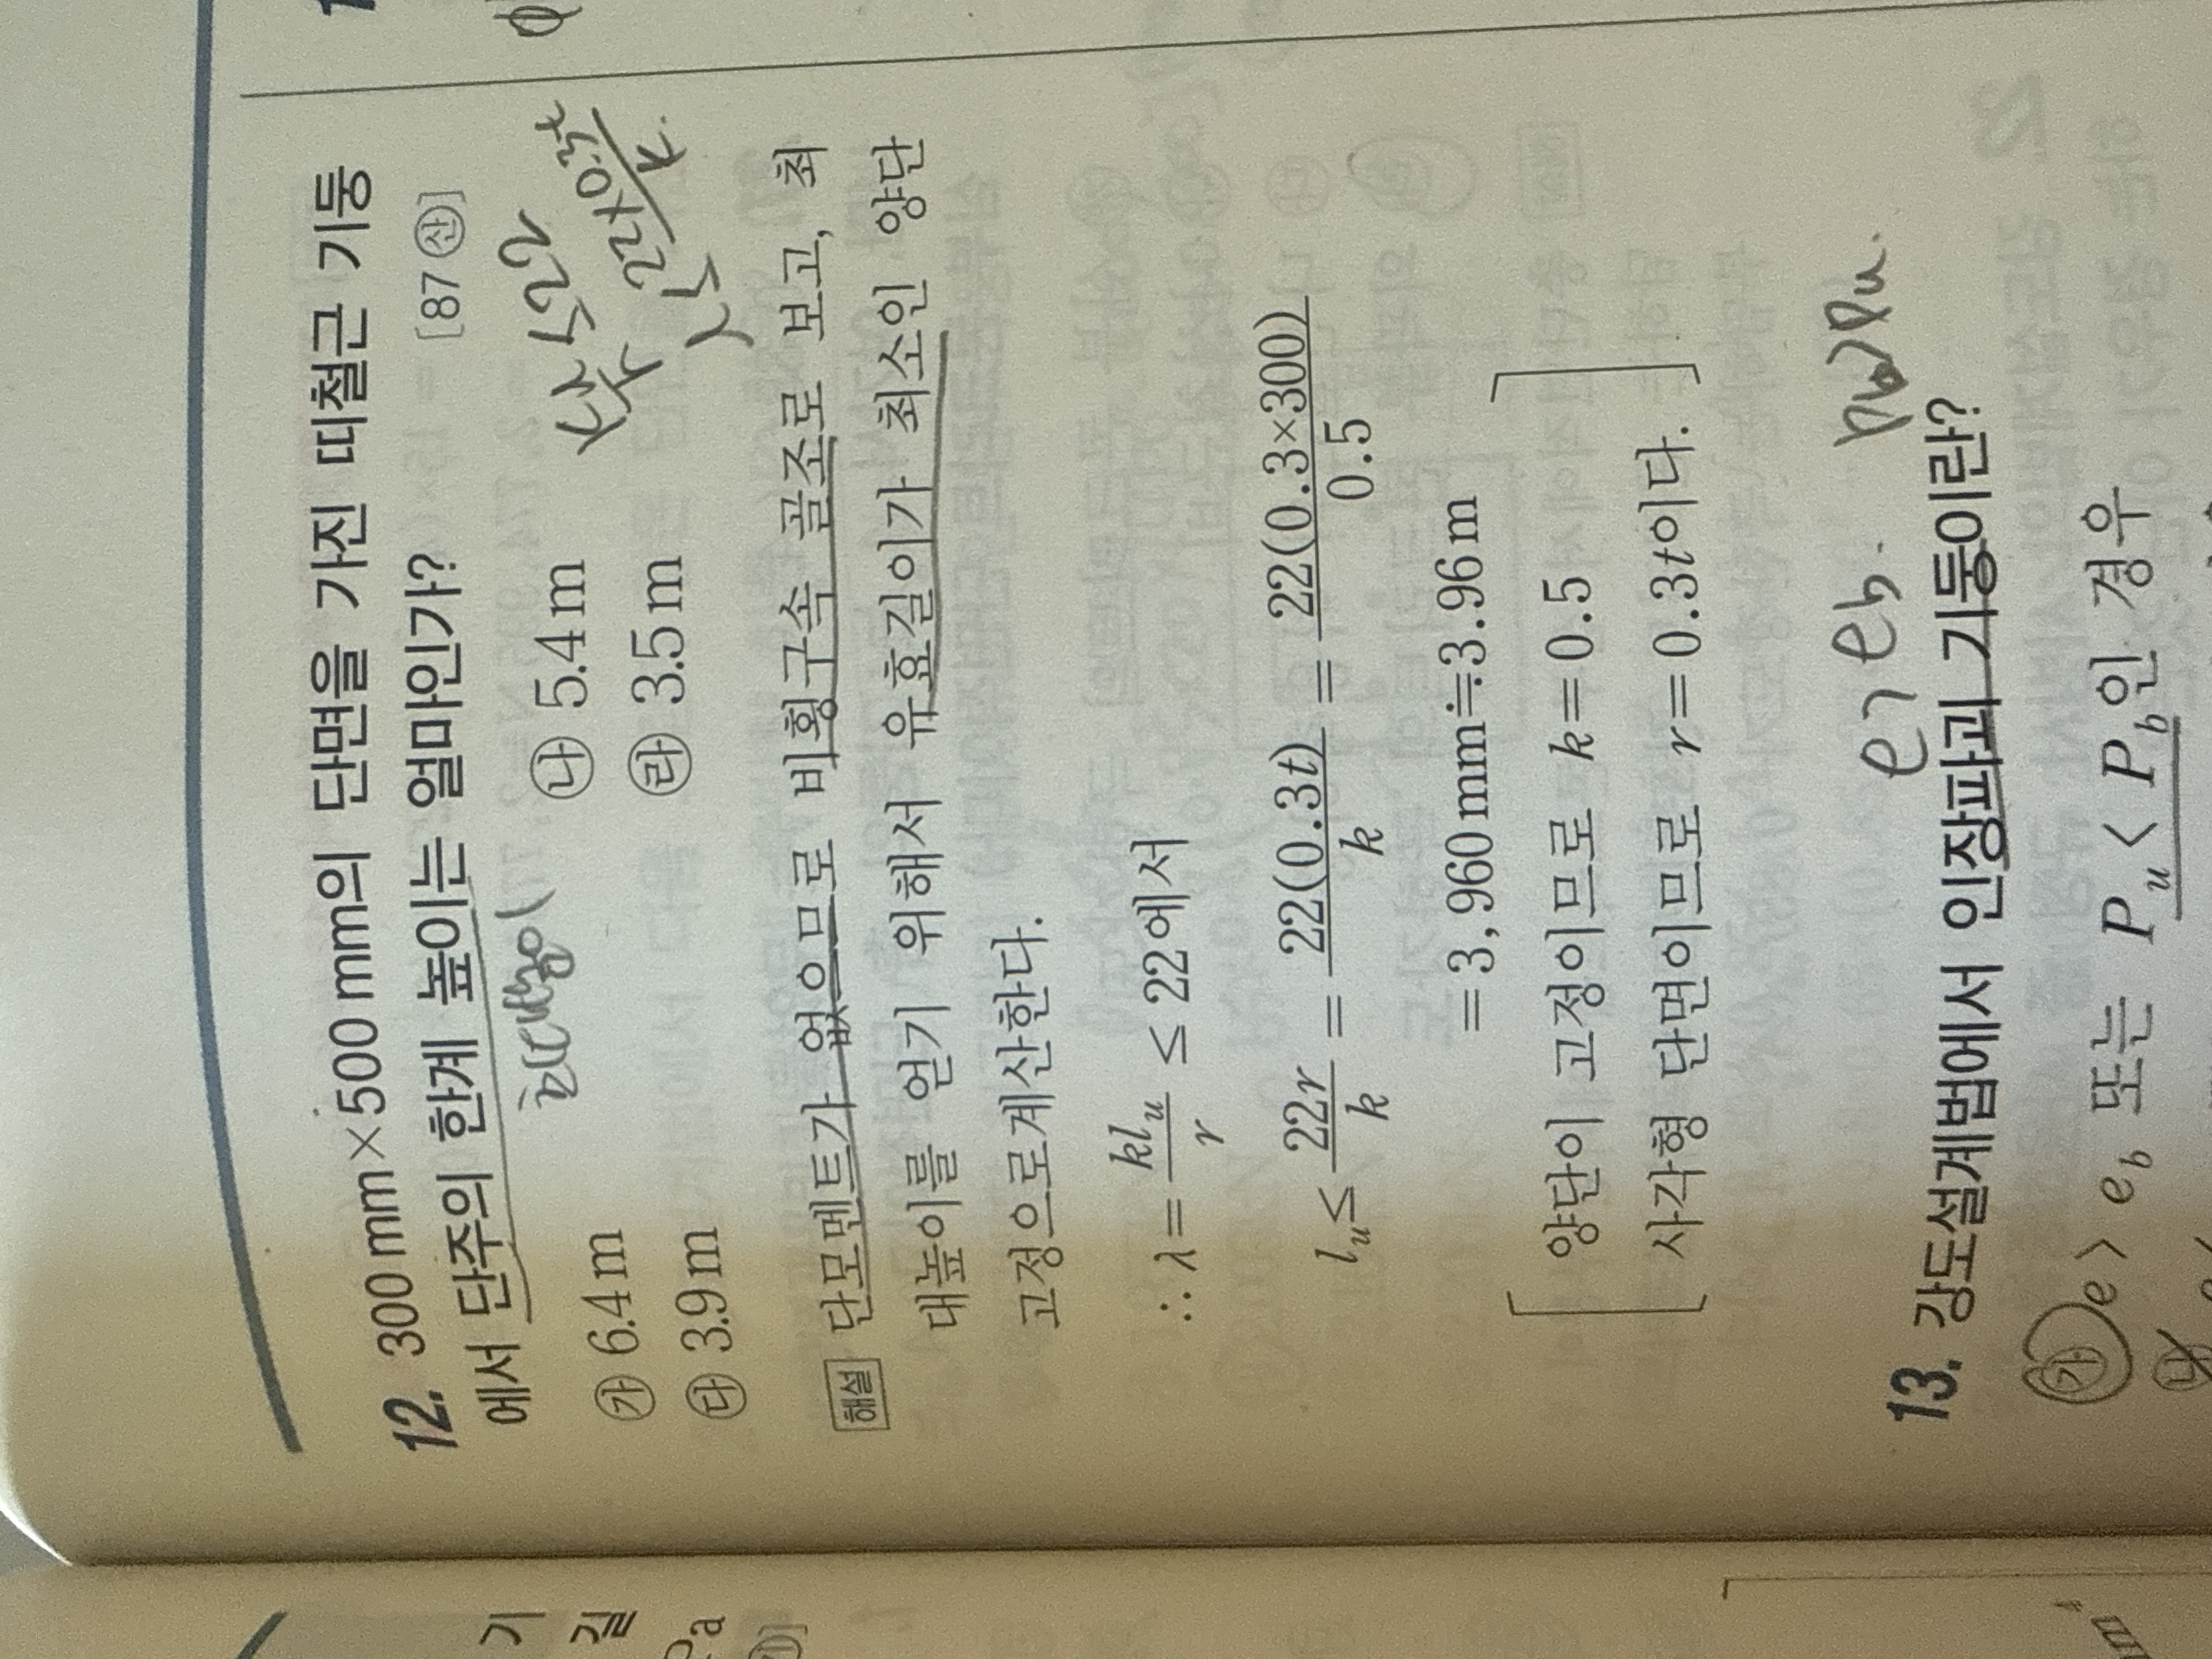 12. 300 mm×500 mm의 단면을 가진 띠철근 기둥
에서 단주의 한계 높이는 얼마인가? [87 ㉮산]
최대높이
㉮ 6.4 m ㉯ 5.4 m
㉰ 3.9 m ㉱ 3.5 m
kλ/r ≤ 22
λ ≤ 22×0.3t/k.
해설 단모멘트가 없으므로 비횡구속 골조로 보고, 최
대높이를 얻기 위해서 유효길이가 최소인 양단
고정으로계산한다.
∴ λ = kl_u/r ≤ 22에서
l_u ≤ 22r/k = 22(0.3t)/k = 22(0.3×300)/0.5
=3,960mm≒3.96m
[양단이 고정이므로 k=0.5
사각형 단면이므로 r=0.3t이다.]
e > e_b. P_b > P_u.
13. 강도설계법에서 인장파괴 기둥이란?
㉮ e > e_b 또는 P_u < P_b인 경우
㉯
기
길
Pa